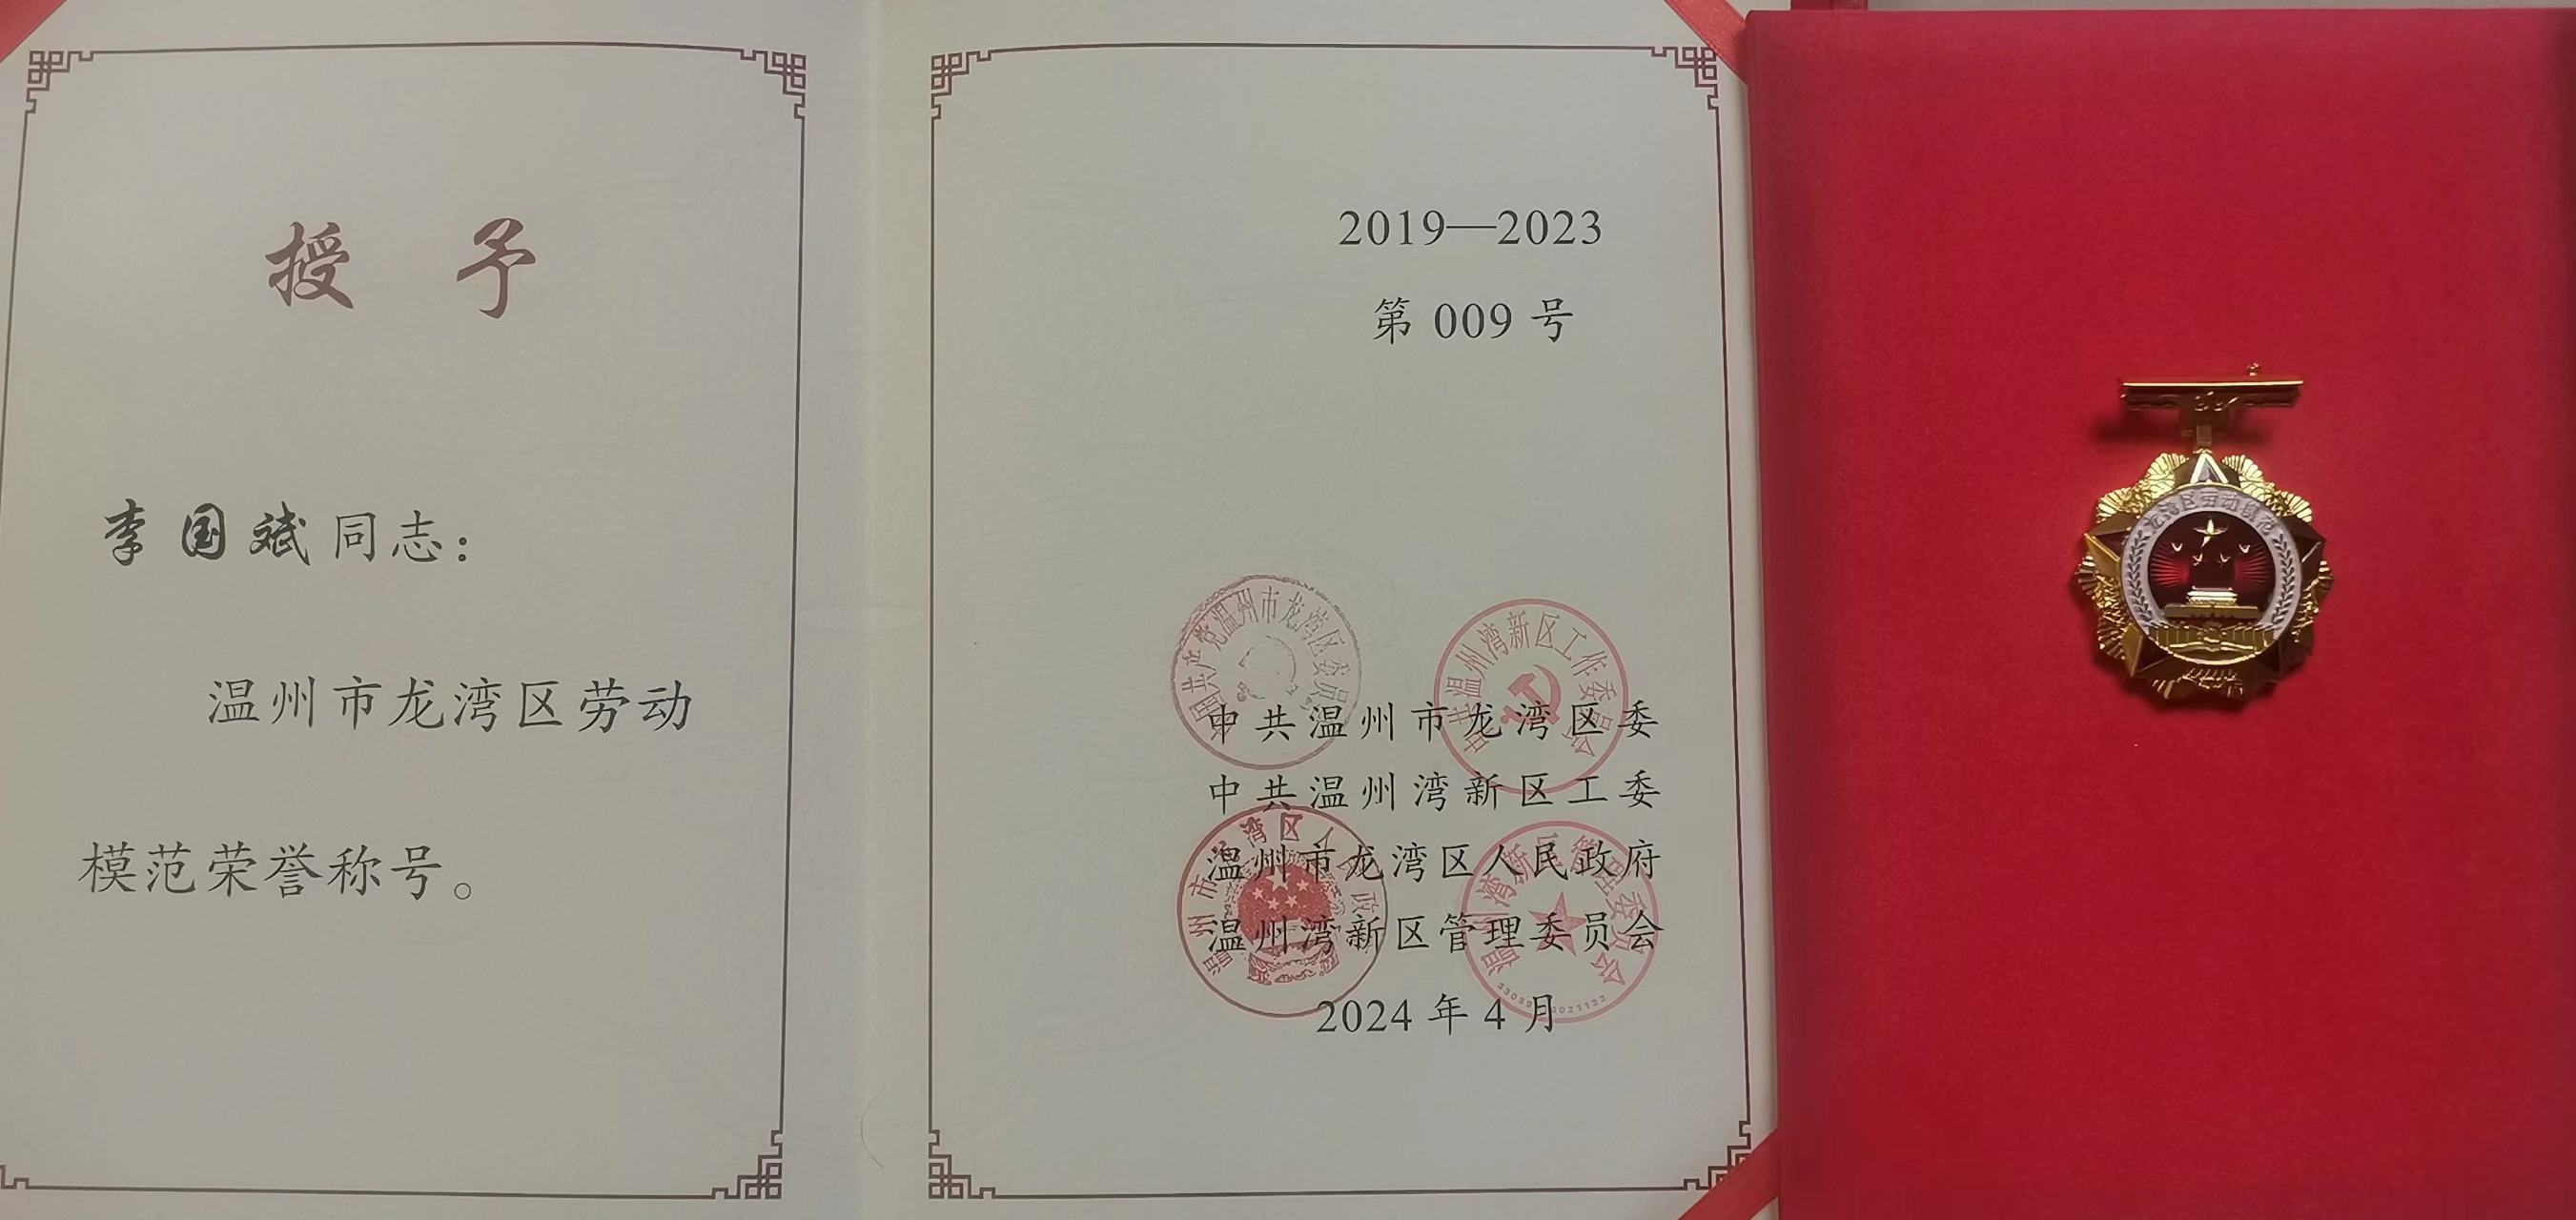 授予
李国斌同志：
温州市龙湾区劳动
模范荣誉称号。
2019—2023
第 009 号
中共温州市龙湾区委
中共温州湾新区工委
温州市龙湾区人民政府
温州湾新区管理委员会
2024 年 4 月
国共产党温州市龙湾区委员
中共温州湾新区工作委员会
龙湾区劳动模范